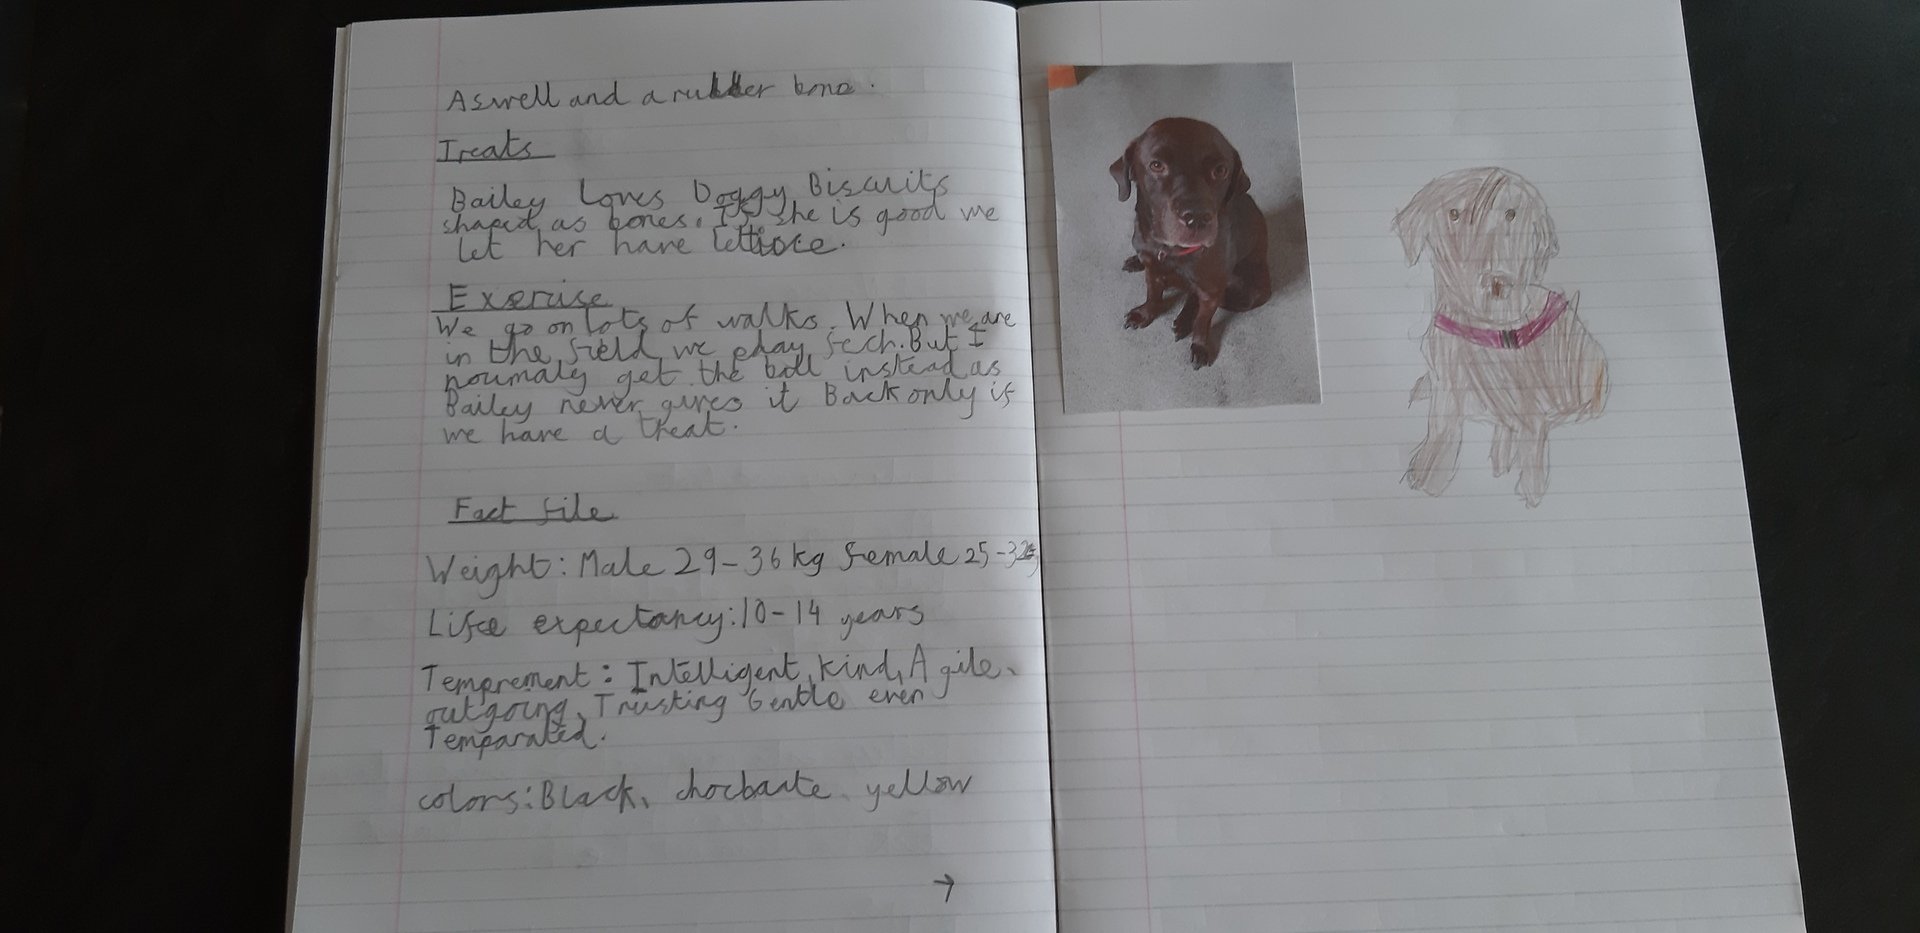 Aswell and a rubber bone.
Treats
Bailey Loves Doggy Biscuits
shaped as bones. If she is good we
let her have
Exercise
We go on lots of walks. When we are
in the field we play fech. But I
noumaly get the ball instead as
Bailey never gives it Back only if
we have a treat.
Fact file
Weight: Male 29-36kg female 25-32
Life expectancy: 10-14 years
Temprement: Intelligent, kind, Agile,
outgoing, Trusting Gentle even
Temparated.
colors: Black, yellow
→